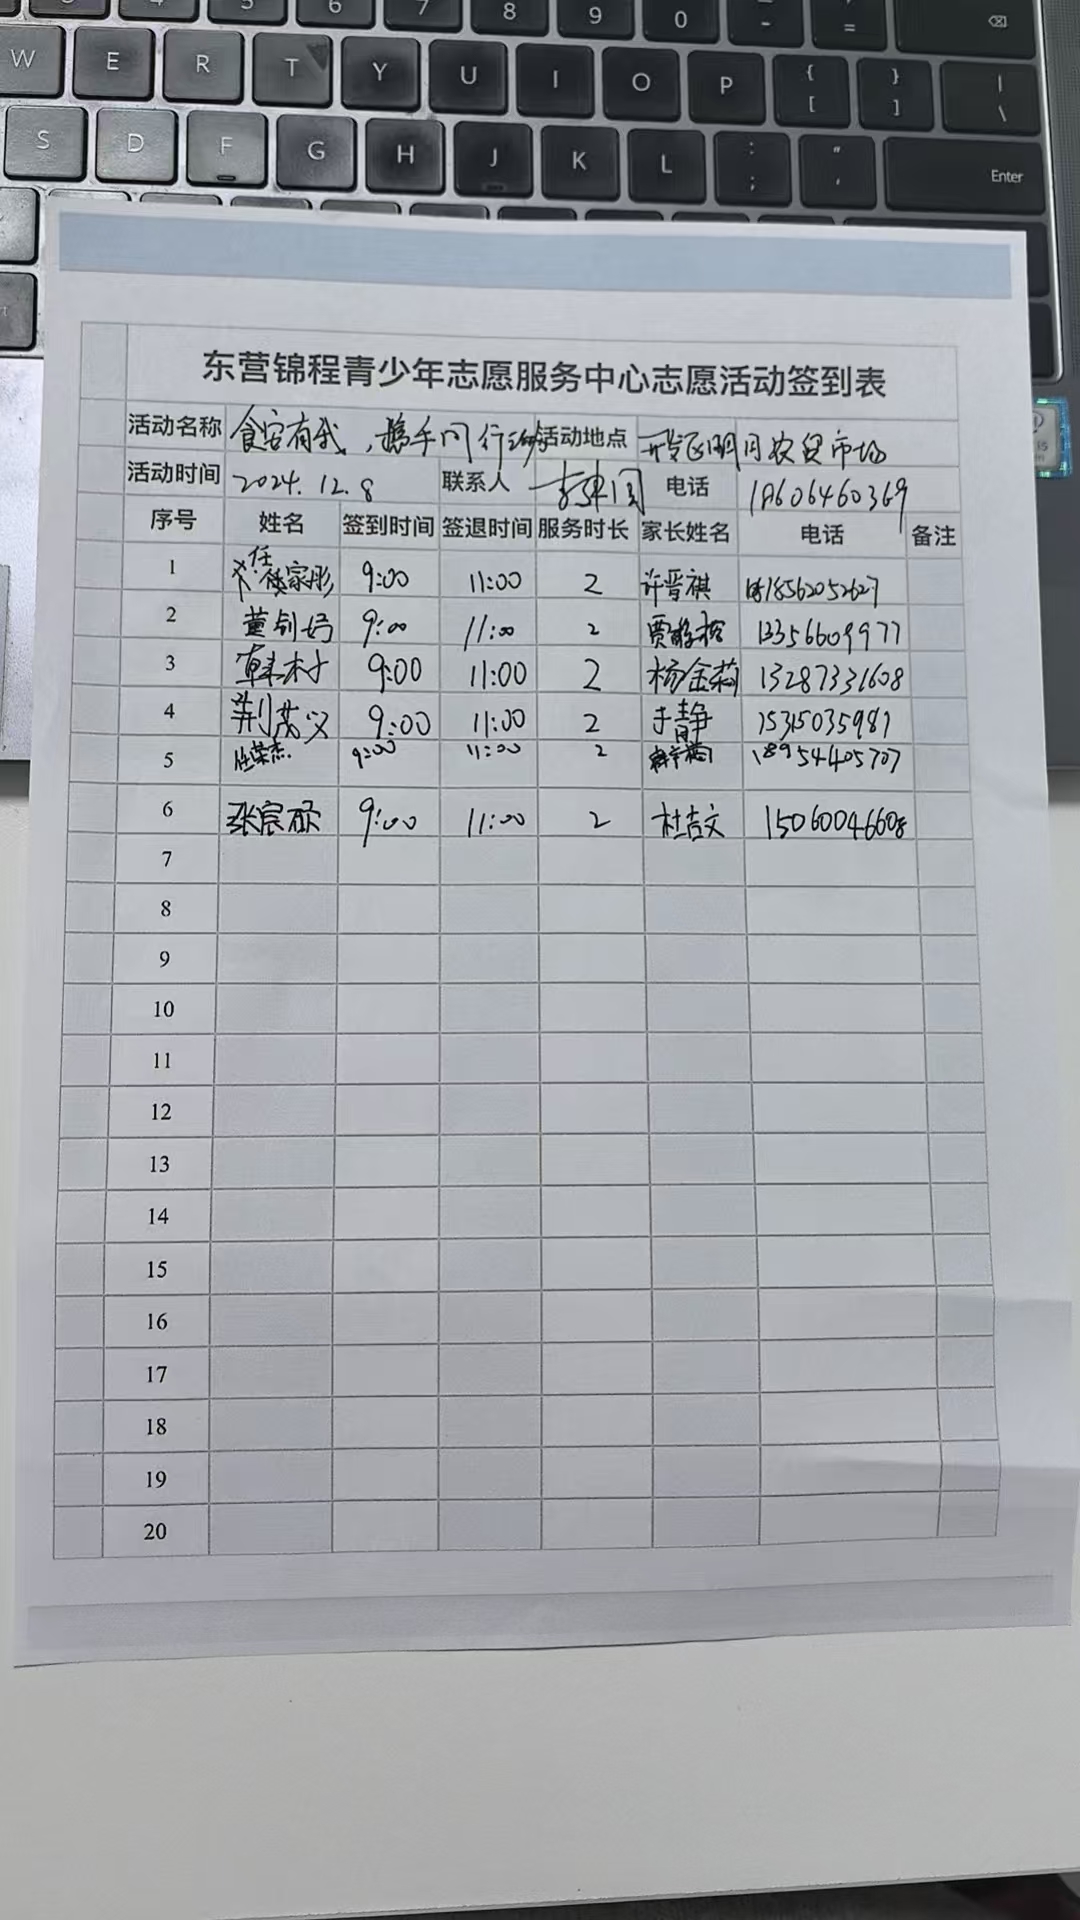 - 
4 5 6 7 8 9 0 - =
W E R T Y U I O P { [ } ] | \
S D F G H J K L : ; " ' Enter
东营锦程青少年志愿服务中心志愿活动签到表
活动名称 食安有我，携手同行 活动地点 开发区明月农贸市场
活动时间 2024.12.8 联系人 电话 18606460369
序号 姓名 签到时间 签退时间 服务时长 家长姓名 电话 备注
1 任家彤 9:00 11:00 2 许晋祺 18562052627
2 董钊妤 9:00 11:00 2 13356609977
3 9:00 11:00 2 杨金莉 13287331608
4 荆茂义 9:00 11:00 2 于静 15315035981
5 任荣杰 9:00 11:00 2 18954405707
6 张宸硕 9:00 11:00 2 杜吉文 15060046608
7
8
9
10
11
12
13
14
15
16
17
18
19
20